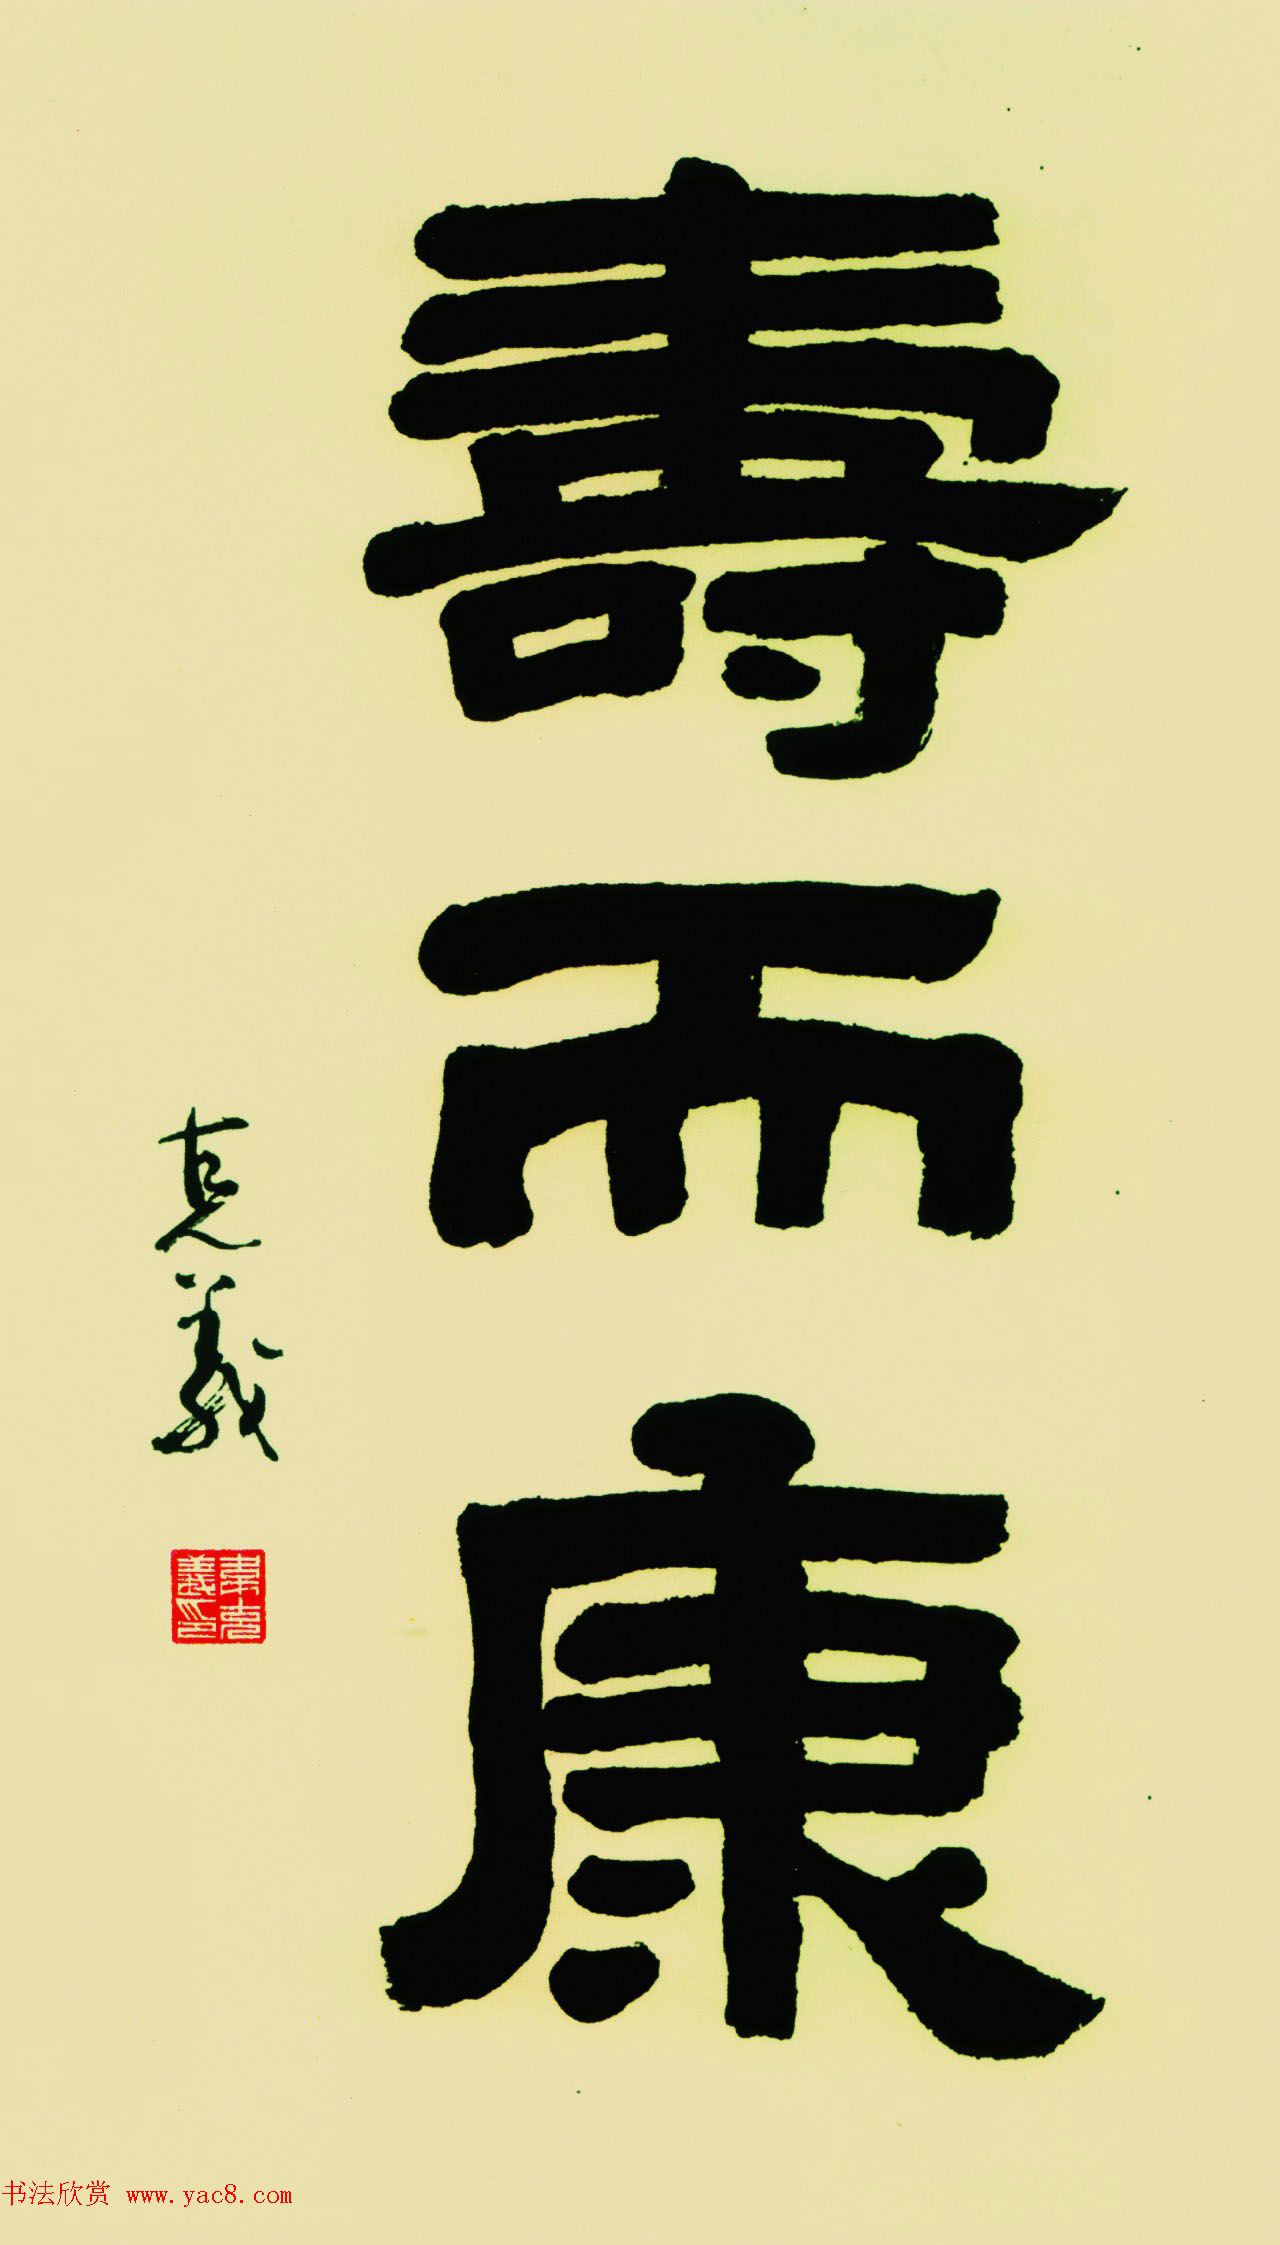 壽而康
克義
韋克義印
书法欣赏 www.yac8.com